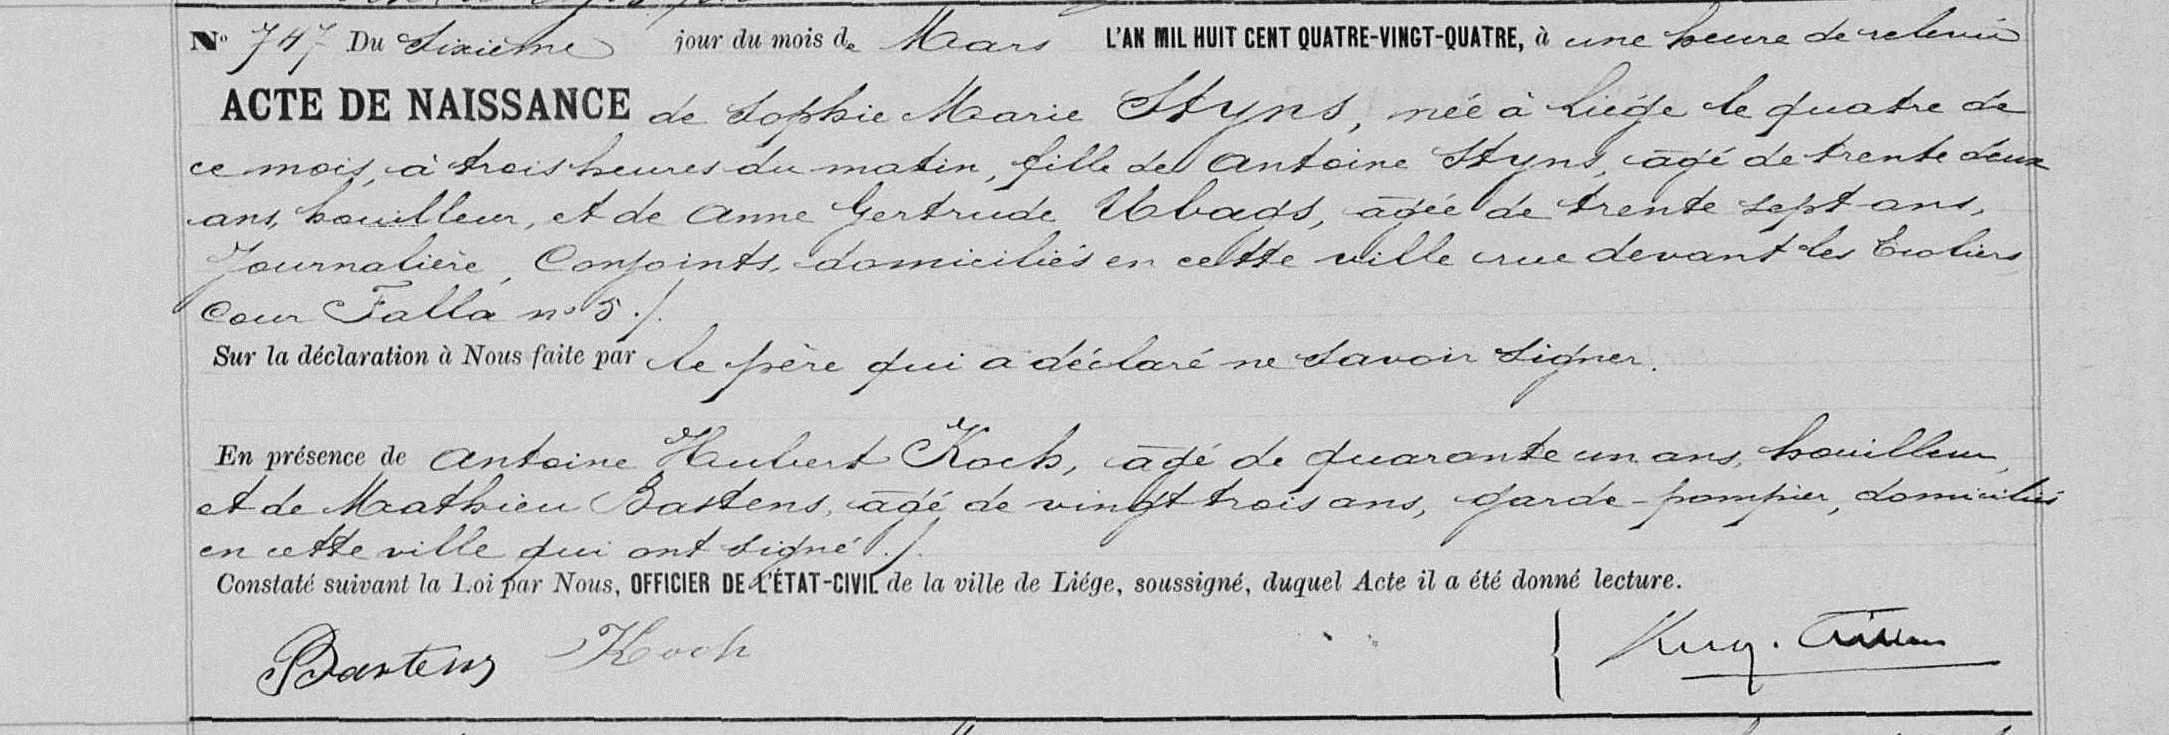 N° 747 Du Sixième jour du mois de Mars L'AN MIL HUIT CENT QUATRE-VINGT-QUATRE, à une heure de relevée
ACTE DE NAISSANCE de Sophie Marie Styns, née à Liége le quatre de
ce mois, à trois heures du matin, fille de Antoine Styns, agé de trente deux
ans, houilleur, et de Anne Gertrude Ubags, agée de trente sept ans,
Journalière, Conjoints, domiciliés en cette ville rue devant les Ecoliers
Cour Falla n° 5 ./.
Sur la déclaration à Nous faite par le père qui a déclaré ne savoir signer.
En présence de Antoine Hubert Koch, agé de quarante un ans, houilleur,
et de Mathieu Bastens, agé de vingt trois ans, garde-pompier, domiciliés
en cette ville qui ont signé ./.
Constaté suivant la Loi par Nous, OFFICIER DE L'ÉTAT-CIVIL de la ville de Liége, soussigné, duquel Acte il a été donné lecture.
Bastens Koch